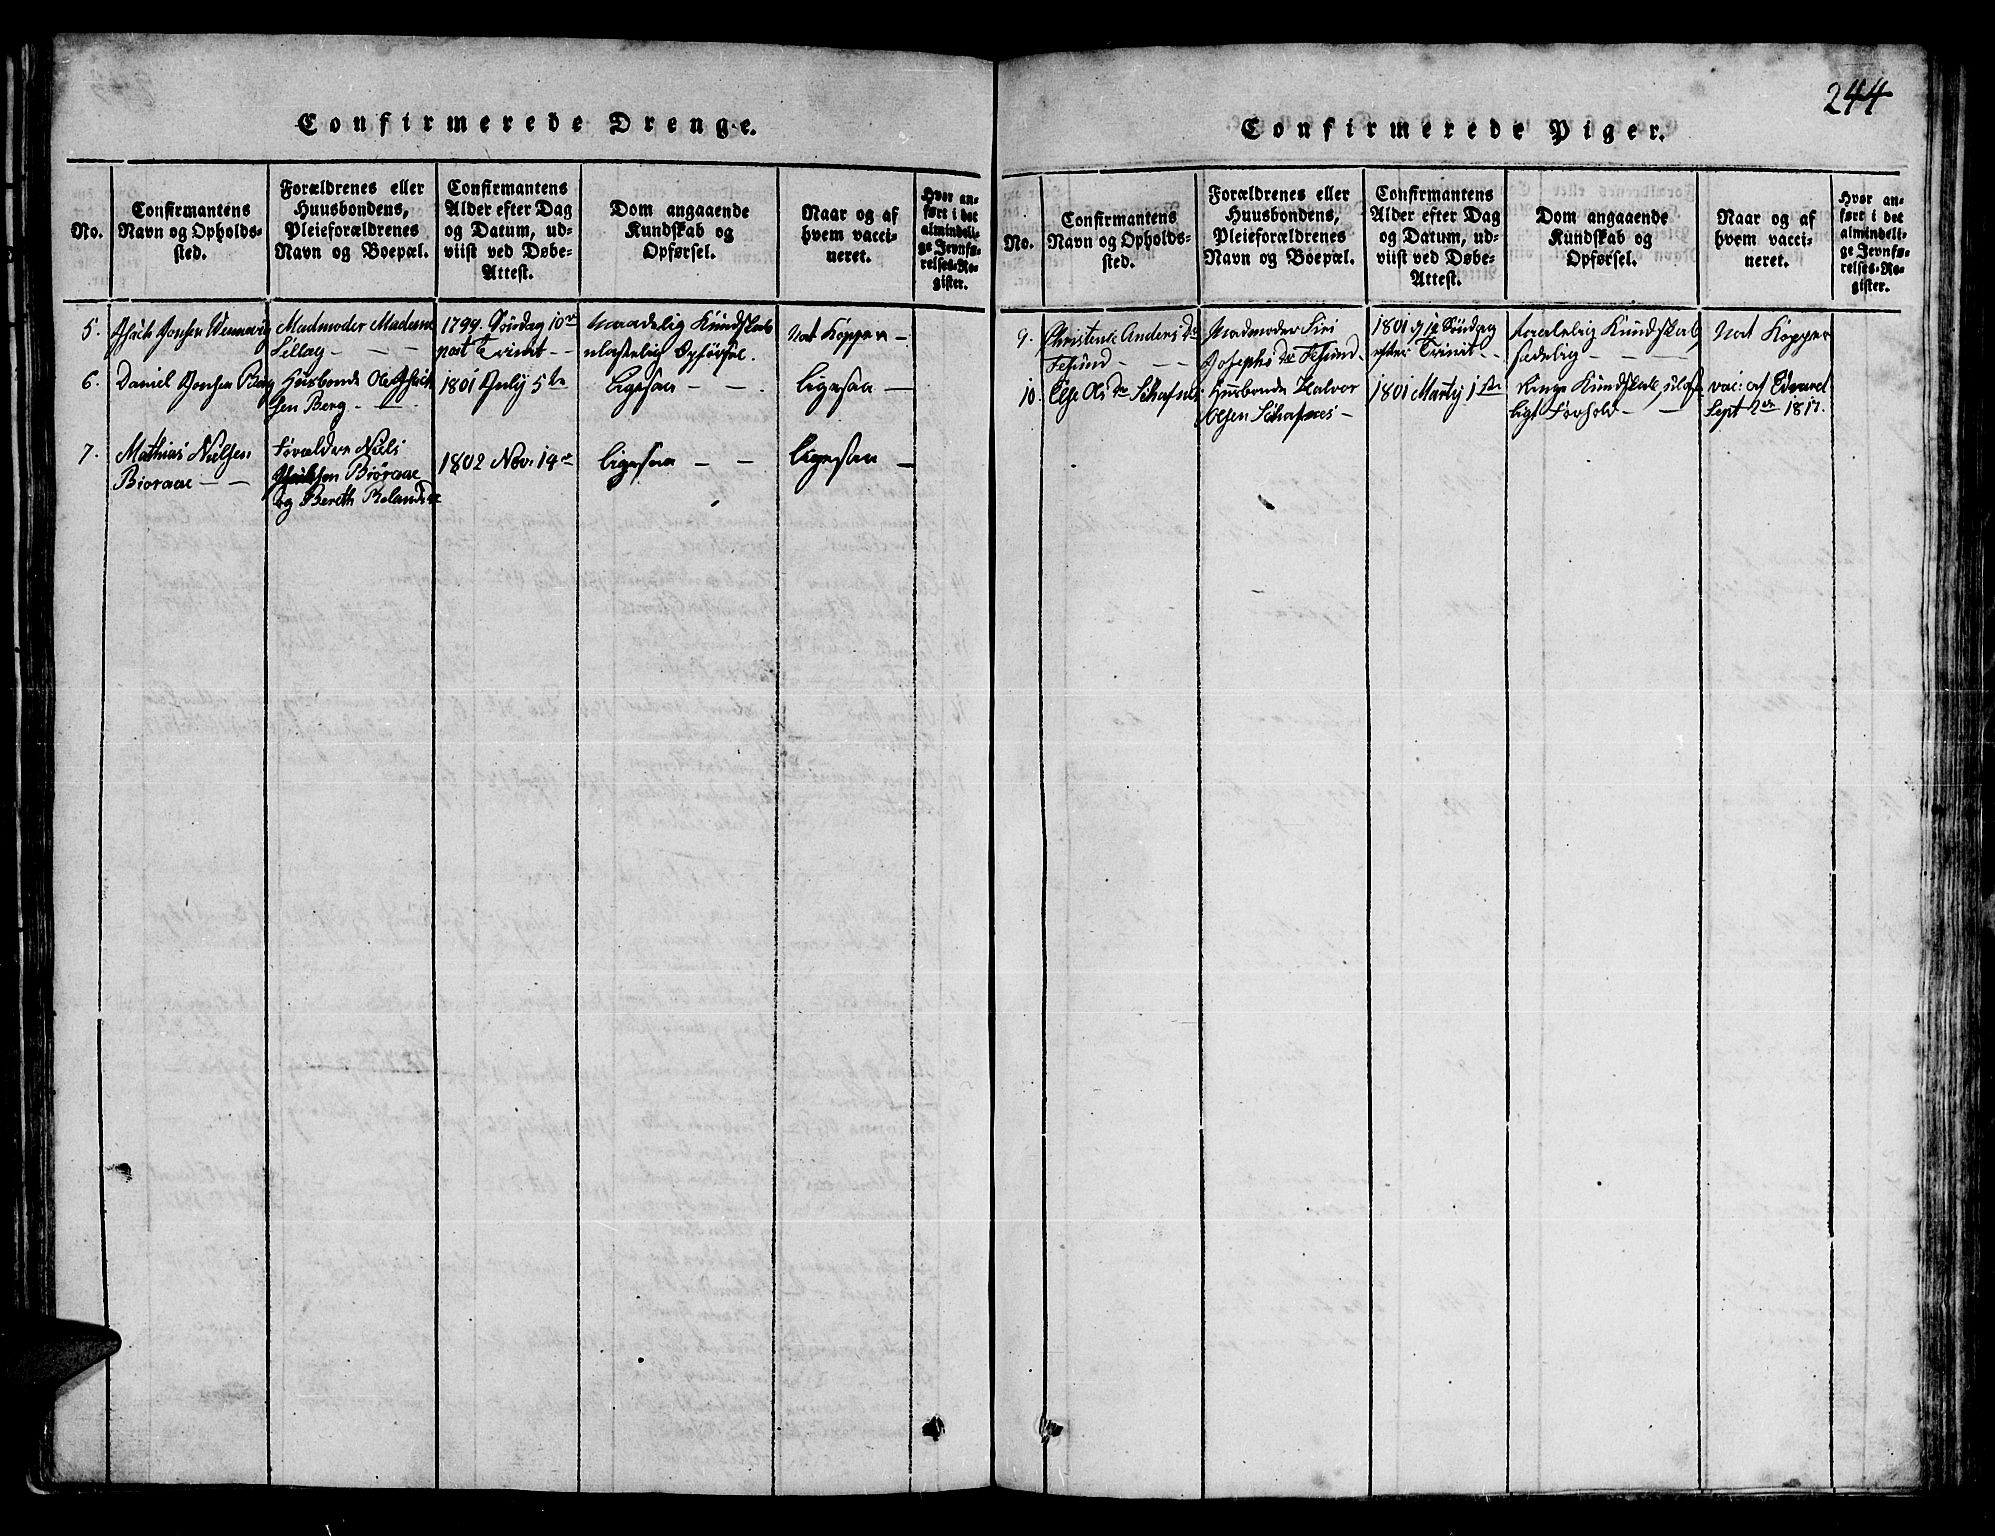 244
Confirmerede Drenge.
No.
Confirmantens
Navn og Opholds-
sted.
Forældrenes eller
Huusbondens,
Pleieforældrenes
Navn og Boepæl.
Confirmantens
Alder efter Dag
og Datum, ud-
viist ved Døbe-
Attest.
Dom angaaende
Kundskab og
Opførsel.
Naar og af
hvem vacci-
neret.
Hvor an-
ført i det
almindeli-
ge Jevnfø-
relses-Re-
gister.
5.
Jonsen
Madmoder Madame
1799. Søndag 10de
post Trinit -
Maadelig Kundskab
Opførsel.
Nat Kopper -
6.
Daniel Jonsen Berg
Huusbonde Ole
sen Berg -
1801 July 5te
Ligesaa - -
Ligesaa -
7.
Mathias Nielsen
Bioraae - -
Forældre Niels
Bioraae
og Bereth
1802 Nov. 14de
Ligesaa - -
Ligesaa -
Confirmerede Piger.
No.
Confirmantens
Navn og Opholds-
sted.
Forældrenes eller
Huusbondens,
Pleieforældrenes
Navn og Boepæl.
Confirmantens
Alder efter Dag
og Datum, ud-
viist ved Døbe-
Attest.
Dom angaaende
Kundskab og
Opførsel.
Naar og af
hvem vacci-
neret.
Hvor an-
ført i det
almindeli-
ge Jevnfø-
relses-Re-
gister.
9.
Christense Anders Dr
Madmoder Siri
Josephs Dr
1801 Søndag
efter Trinit -
Kundskab,
sædelig -
Nat Kopper
10.
Else Ols Dr
Huusbonde Halvor
Olsen
1801 Marty 1ste
Ringe Kundskab,
ligt Forhold -
vac: af Edvard
Sept 2den 1817.